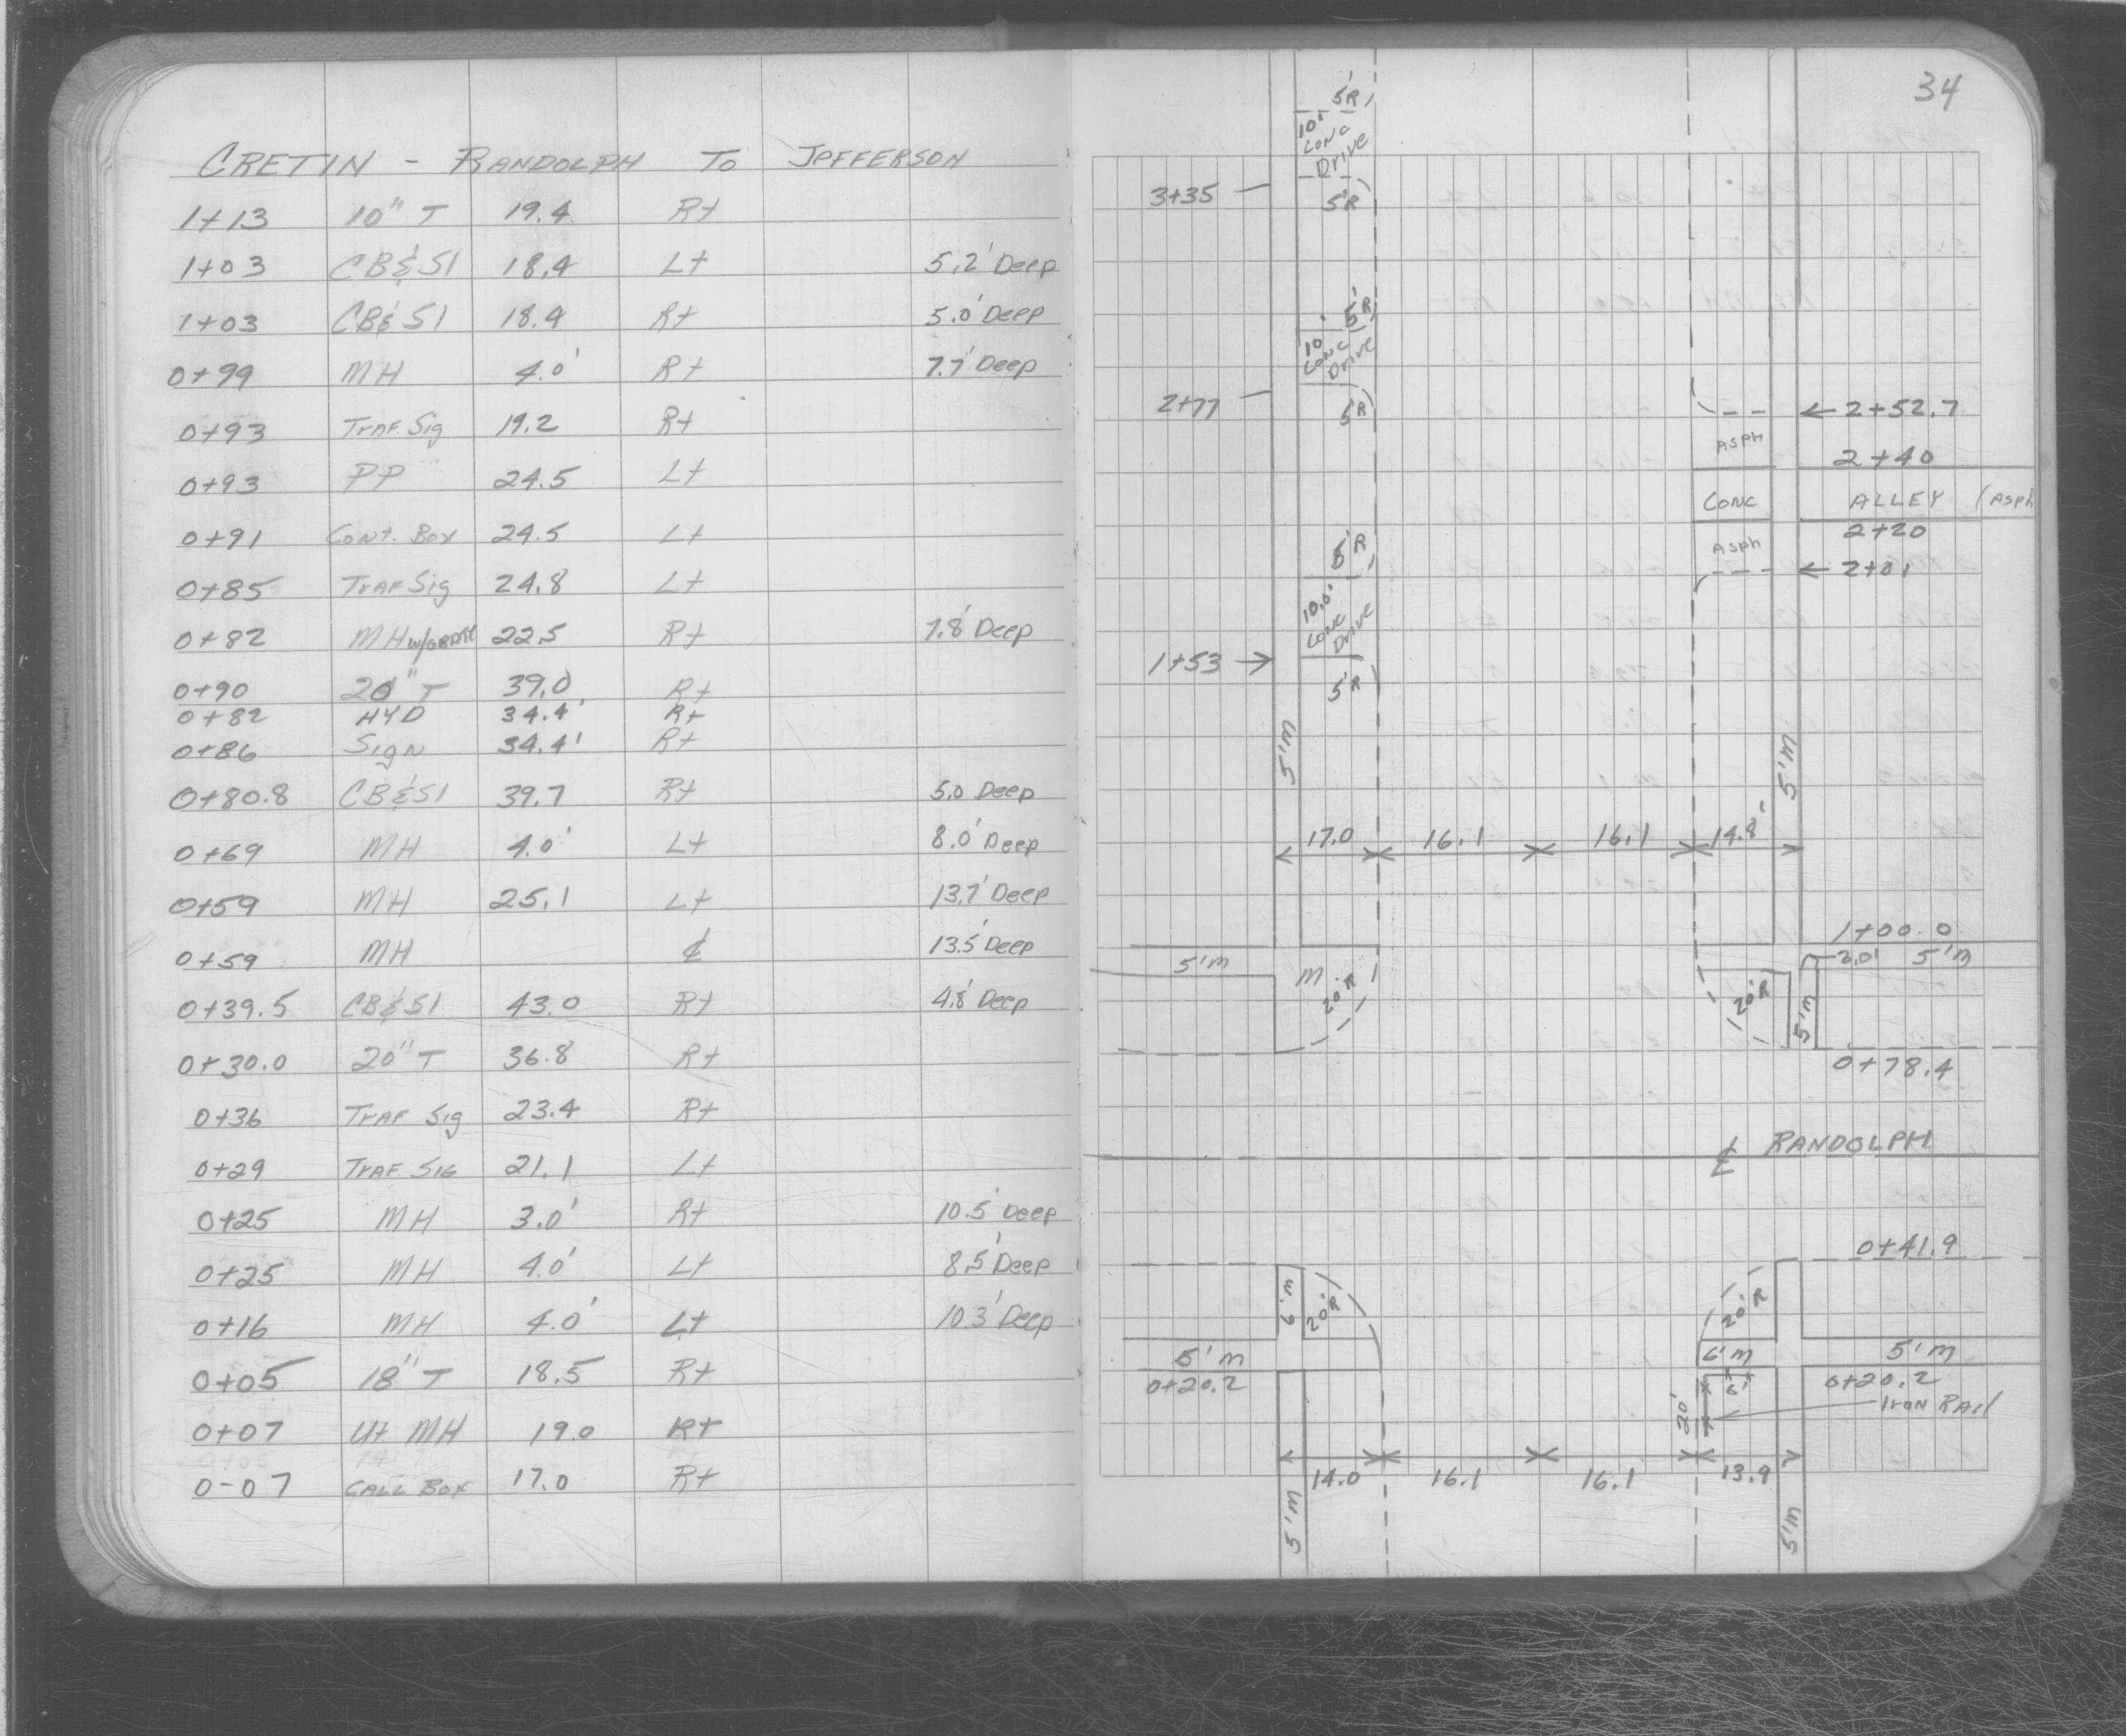 CRETIN - RANDOLPH TO JEFFERSON
1+13 10" T 19.4 Rt
1+03 CB & SI 18.4 Lt 5.2' Deep
1+03 CB & SI 18.4 Rt 5.0' Deep
0+99 MH 4.0' Rt 7.7' Deep
0+93 Traf. Sig 19.2 Rt
0+93 PP 24.5 Lt
0+91 Cont. Box 24.5 Lt
0+85 Traf Sig 24.8 Lt
0+82 MH w/GRATE 22.5 Rt 7.8' Deep
0+90 20" T 39.0 Rt
0+82 HYD 34.4' Rt
0+86 Sign 34.4' Rt
0+80.8 CB & SI 39.7 Rt 5.0 Deep
0+69 MH 4.0' Lt 8.0' Deep
0+59 MH 25.1 Lt 13.7' Deep
0+59 MH ℄ 13.5' Deep
0+39.5 CB & SI 43.0 Rt 4.8' Deep
0+30.0 20" T 36.8 Rt
0+36 Traf Sig 23.4 Rt
0+29 Traf. Sig 21.1 Lt
0+25 MH 3.0' Rt 10.5' Deep
0+25 MH 4.0' Lt 8.5' Deep
0+16 MH 4.0' Lt 10.3' Deep
0+05 18" T 18.5 Rt
0+07 Ut MH 19.0 Rt
0-07 CALL BOX 17.0 Rt
34
5'R
10' Conc Drive
3+35
5'R
5'R
10' Conc Drive
2+77
5'R
2+52.7
Asph
2+40
Conc ALLEY (Asph
2+20
Asph
2+01
5'R
10.0' Conc Drive
1+53
5'R
5'M
5'M
17.0 16.1 16.1 14.8'
1+00.0
5'M
M
20'R
20'R
5'M
3.01 5'M
0+78.4
℄ RANDOLPH
0+41.9
6'M
20'R
20'R
5'M
6'M
5'M
0+20.2
6'
0+20.2
20'
Iron Rail
14.0 16.1 16.1 13.9
5'M
5'M